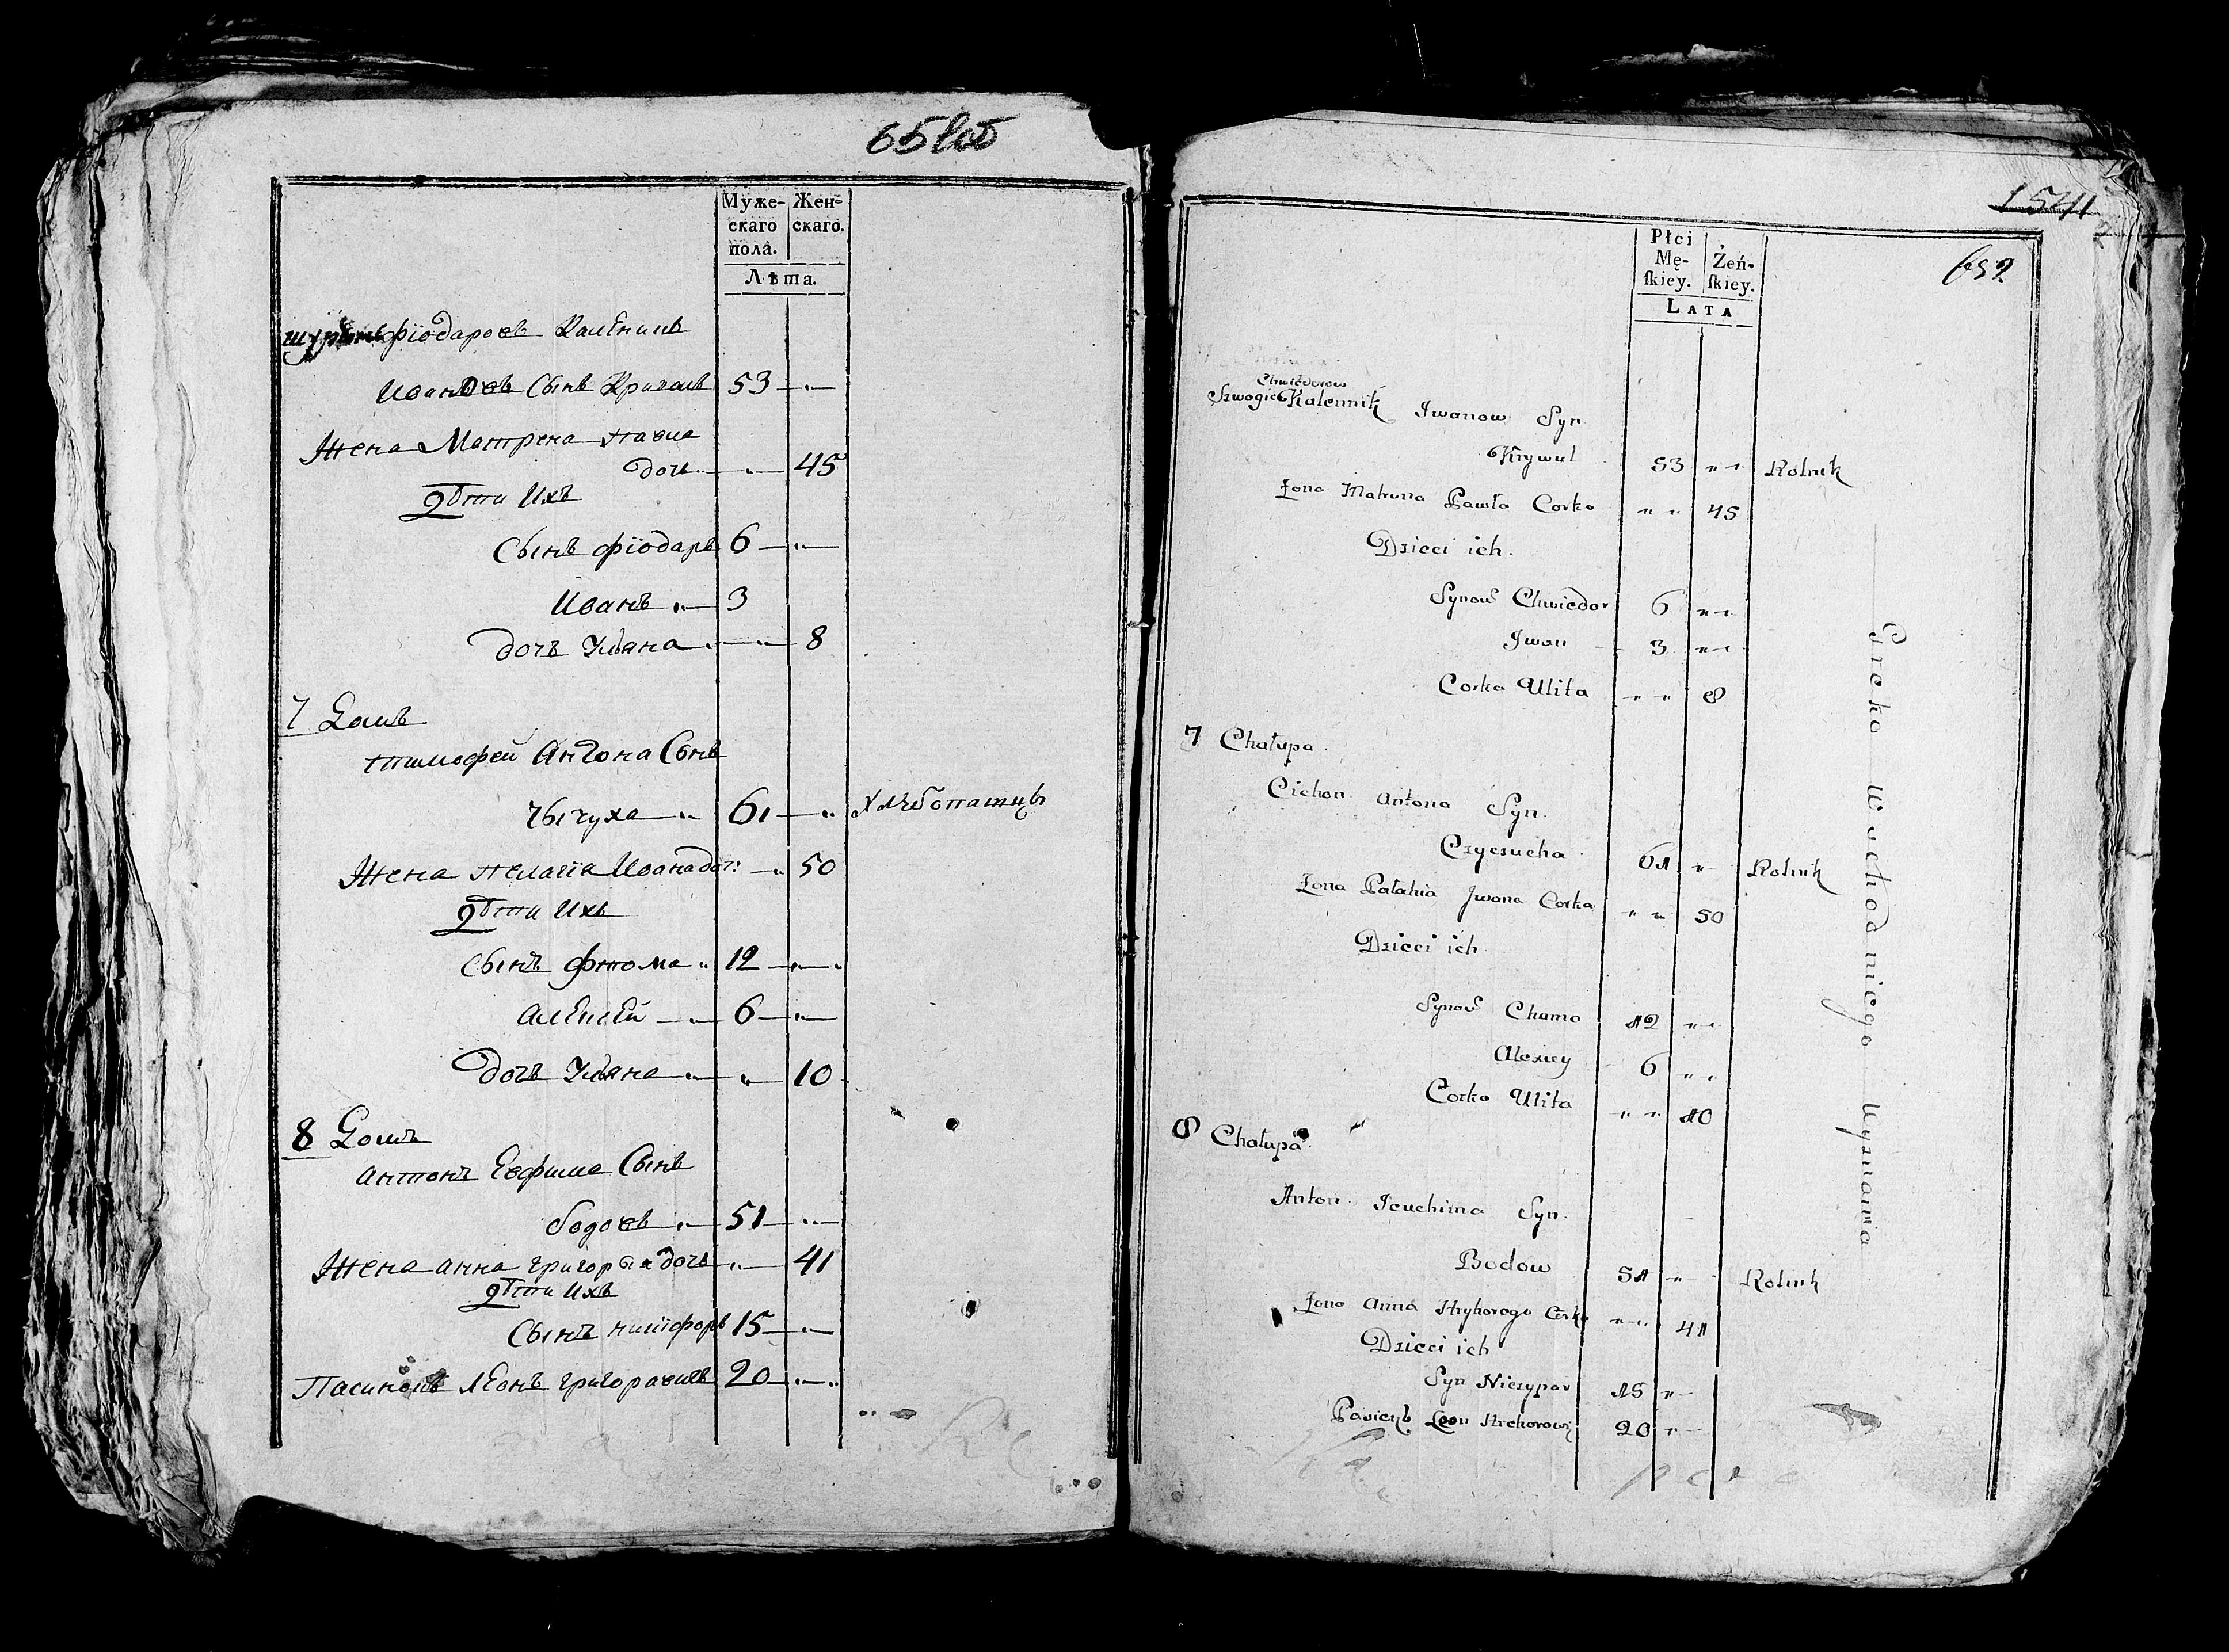 651об
Муже-
скаго
пола.
Жен-
скаго.
Лѣта.
фіодаровъ Каленикъ
Ивановъ Сынъ Криваль 53
Жена Матрена павла
дочь 45
Дѣти Ихъ
Сынъ фіодаръ 6
Иванъ 3
дочь Уляна 8
7 Домъ
тимофей Антона Сынъ
Чычуха 61 Хлѣбопашцъ
Жена пелагіа Ивана доч: 50
Дѣти Ихъ
Сынъ фтома 12
Алексей 6
Дочь Уляна 10
8 Домъ
антонъ Евфима Сынъ
бодовъ 51
Жена анна григорыя дочь 41
Дѣти Ихъ
Сынъ никіфоръ 15
Пасинокъ Леонъ григоравичъ 20
1541
652
Płci
Mę-
ſkiey.
Żeń-
ſkiey.
LATA
Chwiedorow
Szwogier Kalennik Iwanow Syn
Krywul 53 Rolnik
Żona Matruna Pawła Corka 45
Dzieci ich
Synow Chwiedor 6
Iwan 3
Corka Ulita 8
7 Chałupa
Cichon Antona Syn
Czyczucha 61 Rolnik
Żona Pałahia Iwana Corka 50
Dzieci ich
Synow Chama 12
Alexiey 6
Corka Ulita 10
8 Chałupa
Anton Ieuchima Syn
Bodow 51 Rolnik
Żona Anna Hryhorego Corka 41
Dzieci ich
Syn Niczypor 15
Pasierb Leon Hrehorowicz 20
Greko Wschodniego Wyznania